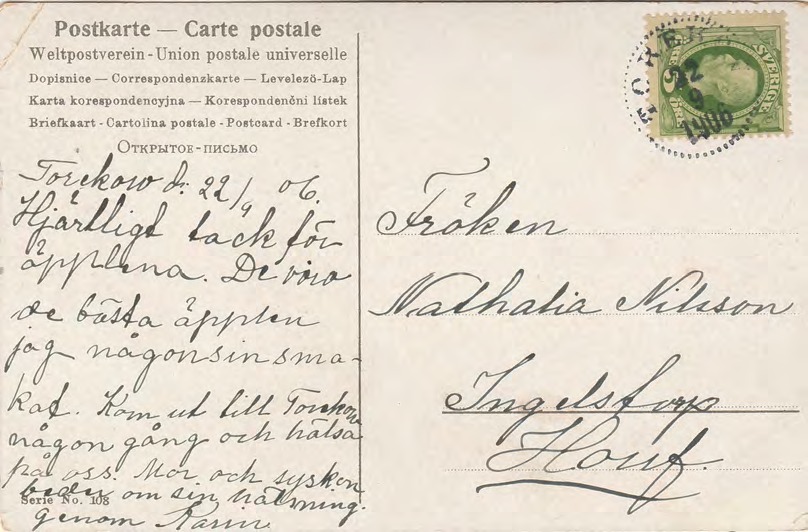 Postkarte — Carte postale
Weltpostverein - Union postale universelle
Dopisnice — Correspondenzkarte — Levelező-Lap
Karta korespondencyjna — Korespondenční lístek
Briefkaart - Cartolina postale - Postcard - Brefkort
Открытое-письмо
Torekow d. 22/9 06.
Hjärtligt tack för
äpplena. De voro
de bästa äpplen
jag någonsin sma-
kat. Kom ut till Torekow
någon gång och hälsa
på oss. Mor och syskon
beder om sin hälsning
genom Karin
Serie No. 108
SVERIGE
5 ÖRE
22
9
1906
Fröken
Nathalia Nilsson
Ingelstorp